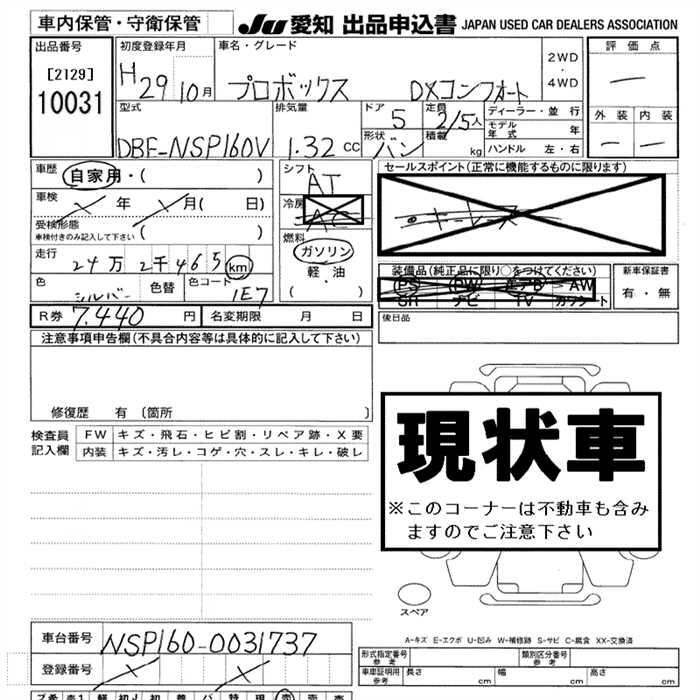 車内保管・守衛保管
JU 愛知 出品申込書 JAPAN USED CAR DEALERS ASSOCIATION
出品番号 初度登録年月 車名・グレード 評価点
[2129]
10031
H29 10月 プロボックス DXコンフォート 2WD・4WD —
型式 排気量 ドア 定員 ディーラー・並行 外装 内装
DBF-NSP160V 1.32 CC 5 2/5人 モデル年式 年 — —
形状 バン 積載 kg ハンドル 左・右
車歴 自家用・( ) シフト AT セールスポイント(正常に機能するものに限ります)
車検 年 月( 日) 冷房 AC キーレス
受検形態
車検付きのみ記入して下さい ( ) 燃料 ガソリン
走行 24万2千465km 軽・油 装備品(純正品に限り○をつけてください) 新車保証書
色 シルバー 色替 色コード 1E7 ・( ) PS PW エアB AW 有・無
SR ナビ TV カワシート
R券 7,440 円 名変期限 月 日 後日品
注意事項申告欄(不具合内容等は具体的に記入して下さい)
修復歴 有 〔箇所 〕
検査員 FW キズ・飛石・ヒビ割・リペア跡・X要
記入欄 内装 キズ・汚レ・コゲ・穴・スレ・キレ・破レ
現状車
※このコーナーは不動車も含み
ますのでご注意下さい
スペア
A-キズ E-エクボ U-凹み W-補修跡 S-サビ C-腐食 XX-交換済
車台番号 NSP160-0031737
登録番号
形式指定番号 参考 類別区分番号 参考
車庫証明用 参考 長さ cm 幅 cm 高さ cm